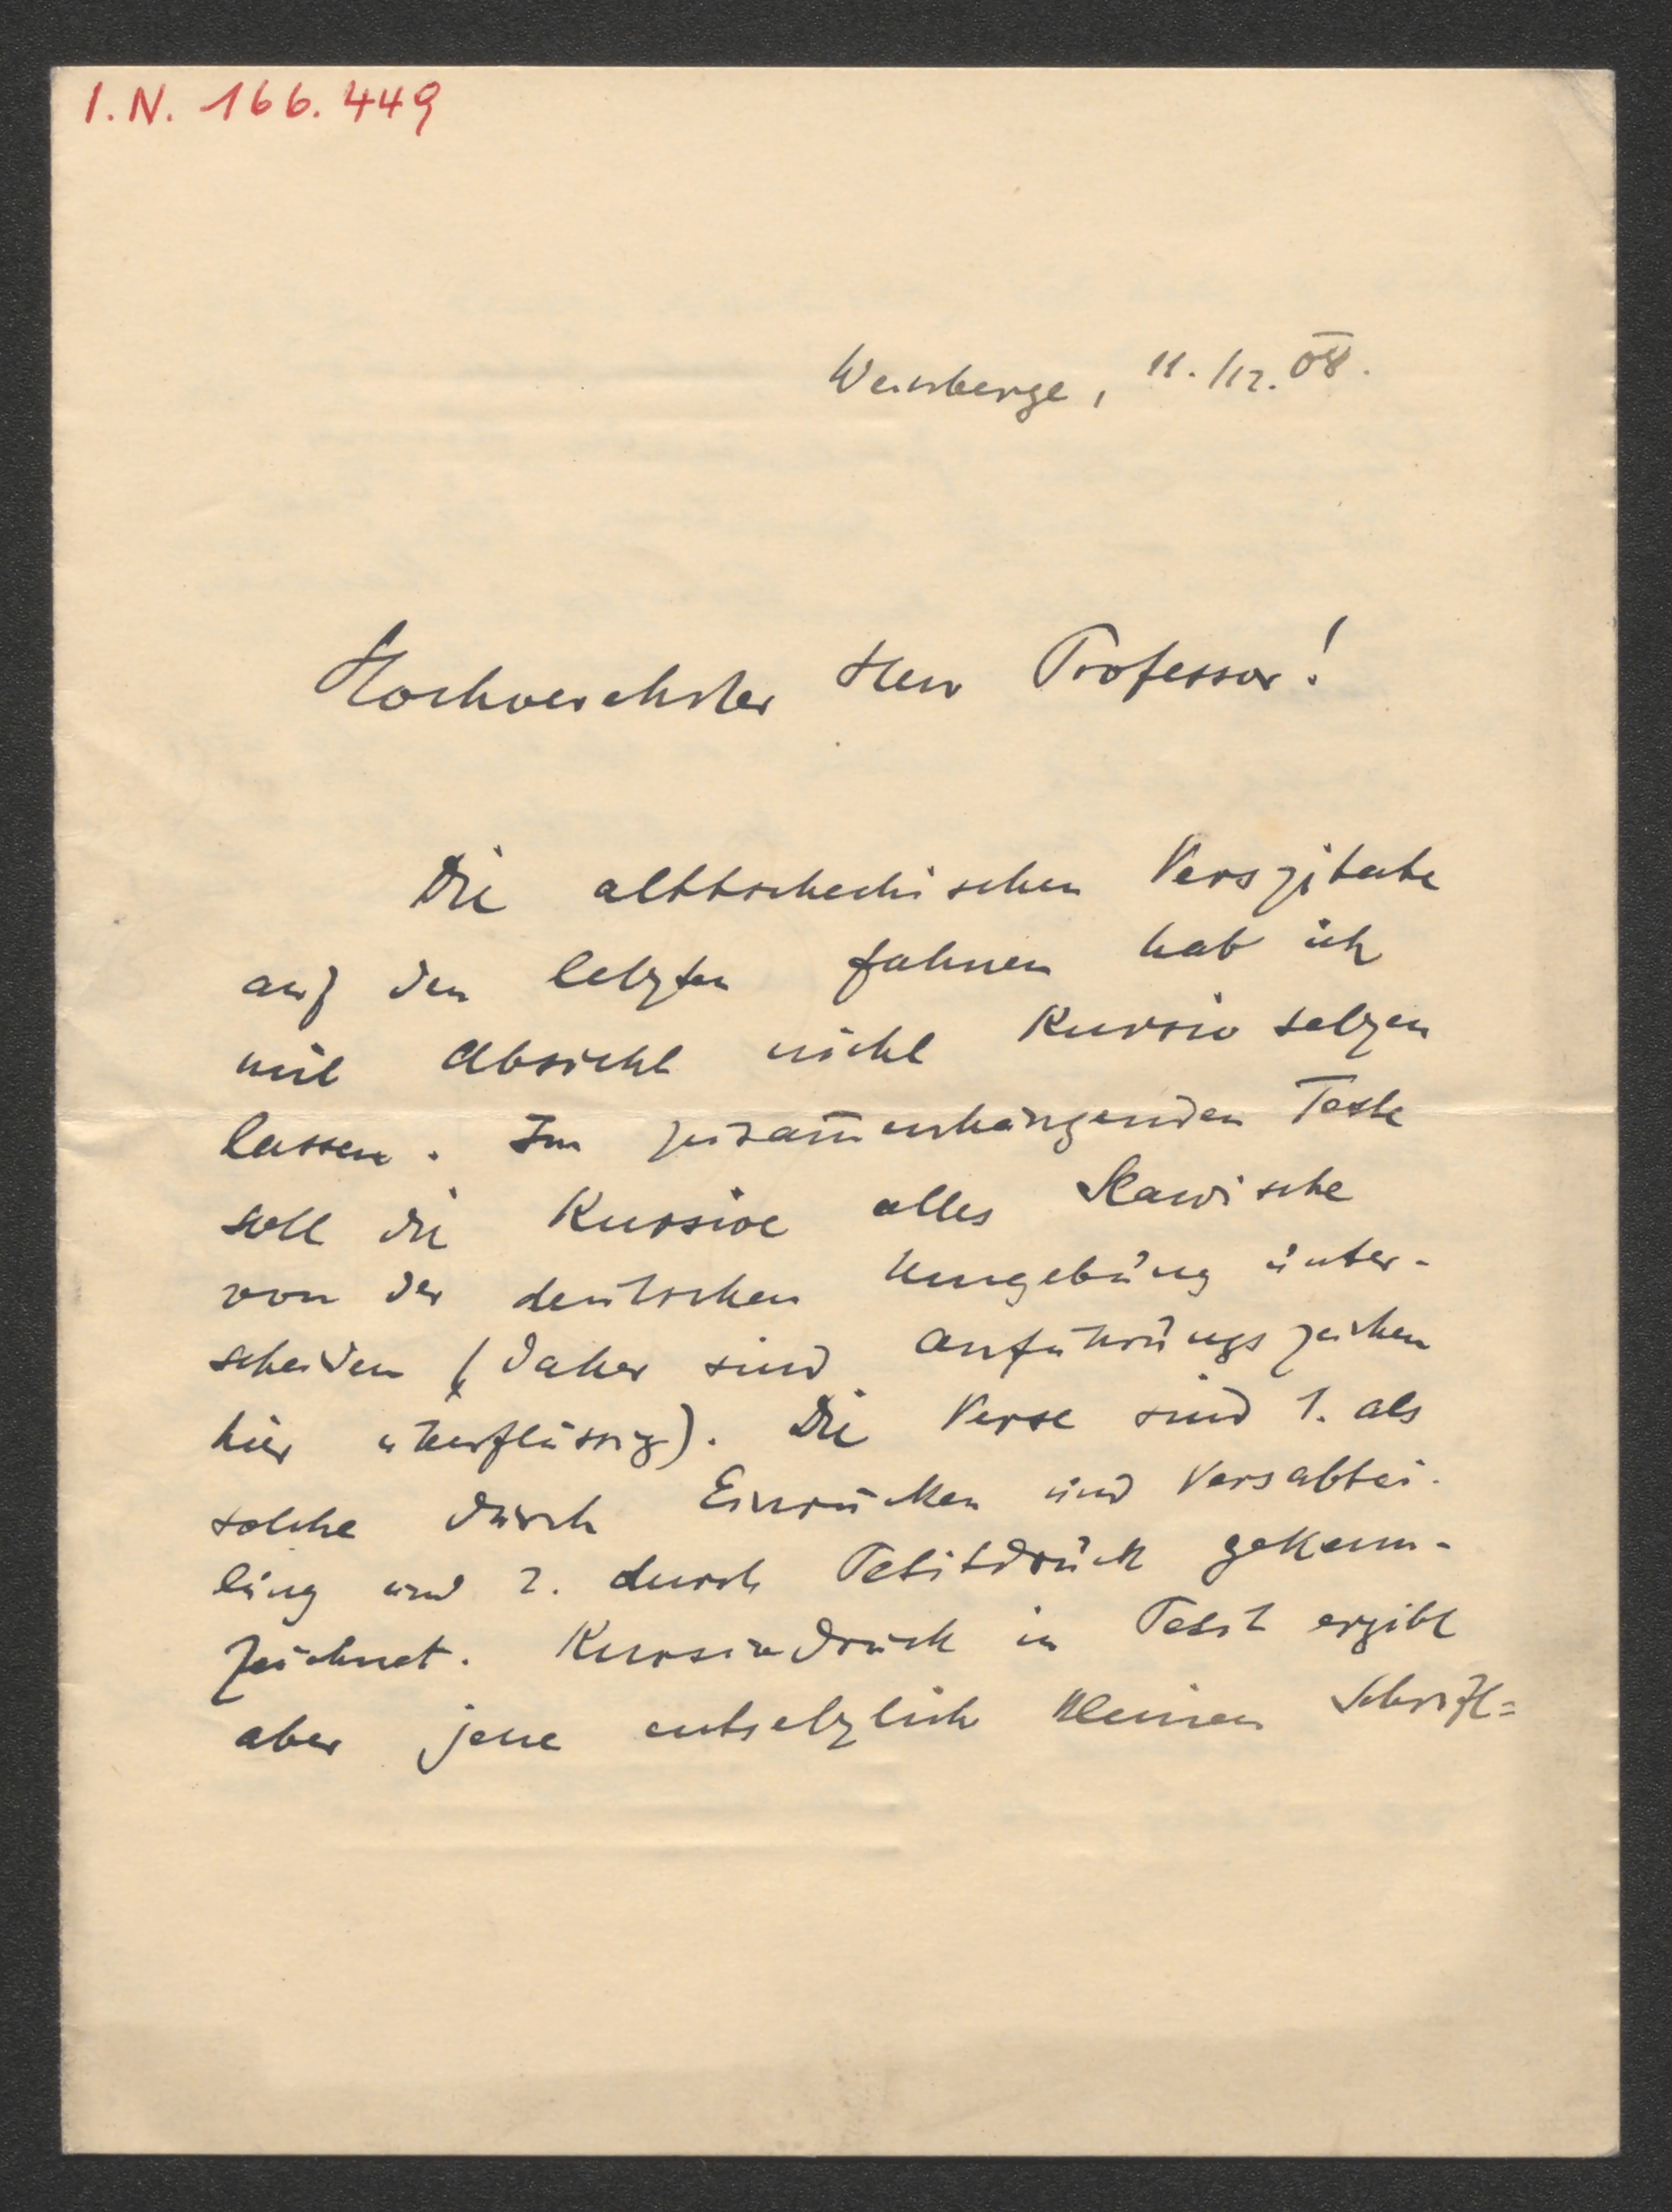 I.N. 166.449
Weinberge, 11./12. 08.
Hochverehrter Herr Professor!
Die alttschechischen Verszitate
auf den letzten Fahnen hab ich
mit Absicht nicht Kursiv setzen
lassen. Im zusam̅enhängenden Texte
soll die Kursive alles Slawische
von der deutschen Umgebung unter-
scheiden (daher sind Anführungszeichen
hier überflüssig). Die Verse sind 1. als
solche durch Einrücken und Versabtei-
lung und 2. durch Petitdruck gekenn-
zeichnet. Kursivdruck in Petit ergibt
aber jene entsetzlich kleinen Schrift=